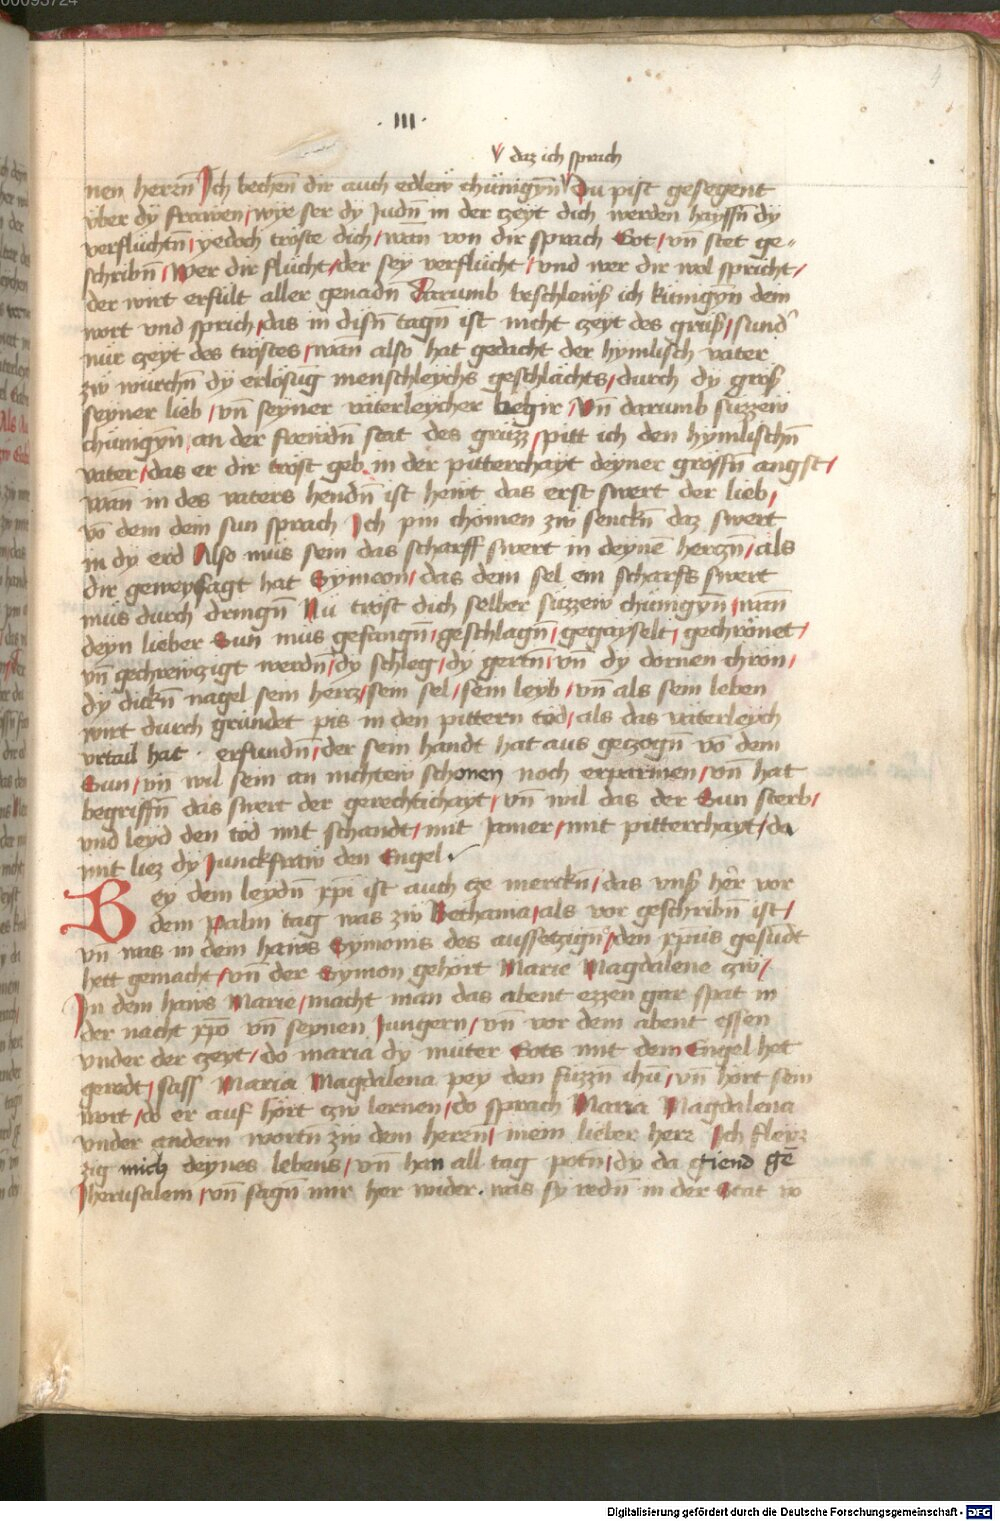 · III ·
daz ich sprach
nen herrn̄ Ich bechen̄ dir auch edlew chünigyn̄ Du pist gesegent
vber dy frawen / wye ser dy Judn̄ in der czeyt dich werden hayssn̄ dy
verflüchtn̄ / yedoch tröste dich / wan̄ von dir sprach Got / vn̄ stet ge-
schribn̄ / Wer dir flücht / der sey verflücht / vnd wer dir wol spricht /
der wirt erfült aller genadn̄ Darumb beschlewß ich künigyn̄ dein
wort vnd sprich / das in disn̄ tagn̄ ist nicht czeyt des gruß / sund'
nür czeyt des tröstes / wan̄ also hat gedacht der hymlisch vater
zw würchn̄ dy erlösūg menschleychs geschlächts / durch dy groß
seyner lieb / vn̄ seyner väterleycher begir / Vn̄ darumb süzzew
chünigyn̄ / an der frewdn̄ stat des gruzz / pitt ich den hymlischn̄
vater / das er dir tröst geb in der pitterchayt deyner grossn̄ angst /
wan̄ in des vaters hendn̄ ist hewt das erst swert der lieb /
vō dem dein sun sprach Ich pin chömen zw senckn̄ daz swert
in dy erd Also müs sein das scharff swert in deynē herczn̄ / als
dir geweyssagt hat Symeon / das dein sel ein scharfs swert
müs durch dringn̄ Nü tröst dich selber süzzew chünigyn̄ / wan̄
deyn lieber Sun mus gefangn̄ / geschlagn̄ / gegayselt / gechrönet /
vn̄ gechrewczigt werdn̄ / dy schleg / dy gertn̄ / vn̄ dy dornen chron /
dy dickn̄ nagel sein hercz / sein sel / sein leyb / vn̄ als sein leben
wirt durch gründet pis in den pittern tod / als das väterleych
vrtail hat · erfundn̄ / der sein handt hat aus geczogn̄ vō dem
Sun / vn̄ wil sein an nichtew schonen noch erparmen / vn̄ hat
begriffn̄ das swert der gerechtichayt / vn̄ wil das der Sun sterb /
vnd leyd den tod mit schandt / mit Jamer / mit pitterchayt / da
mit liez dy Junckfraw den Engel
Bey dem leydn̄ xp̄i ist auch cze merckn̄ / das vnß her̄ vor
dem Palm tag was zw Bethania / als vor geschribn̄ ist /
vn̄ was in dem haws Symonis des aussetzign̄ / den xp̄us gesūdt
hett gemacht / vn̄ der Symon gehört Marie Magdalene czw /
In dem haws Marie / macht man das abent ezzen gar spat in
der nacht xp̄o vn̄ seynen Jungern / vn̄ vor dem abent essen
vnder der czeyt / do maria dy müter Gots mit dem Engel het
geredt / sass Maria Magdalena pey den füzzn̄ ihū / vn̄ hört sein
wort / do er auf hört czw lernen / do sprach Maria Magdalena
vnder andern wortn̄ zw dem herrn̄ / mein lieber herr Ich fleyz
zig mich deynes lebens / vn̄ han all tag potn̄ / dy da gen̄
Iherusalem / vn̄ sagn̄ mir her wider · was sy redn̄ in der Stat vō
Digitalisierung gefördert durch die Deutsche Forschungsgemeinschaft - DFG